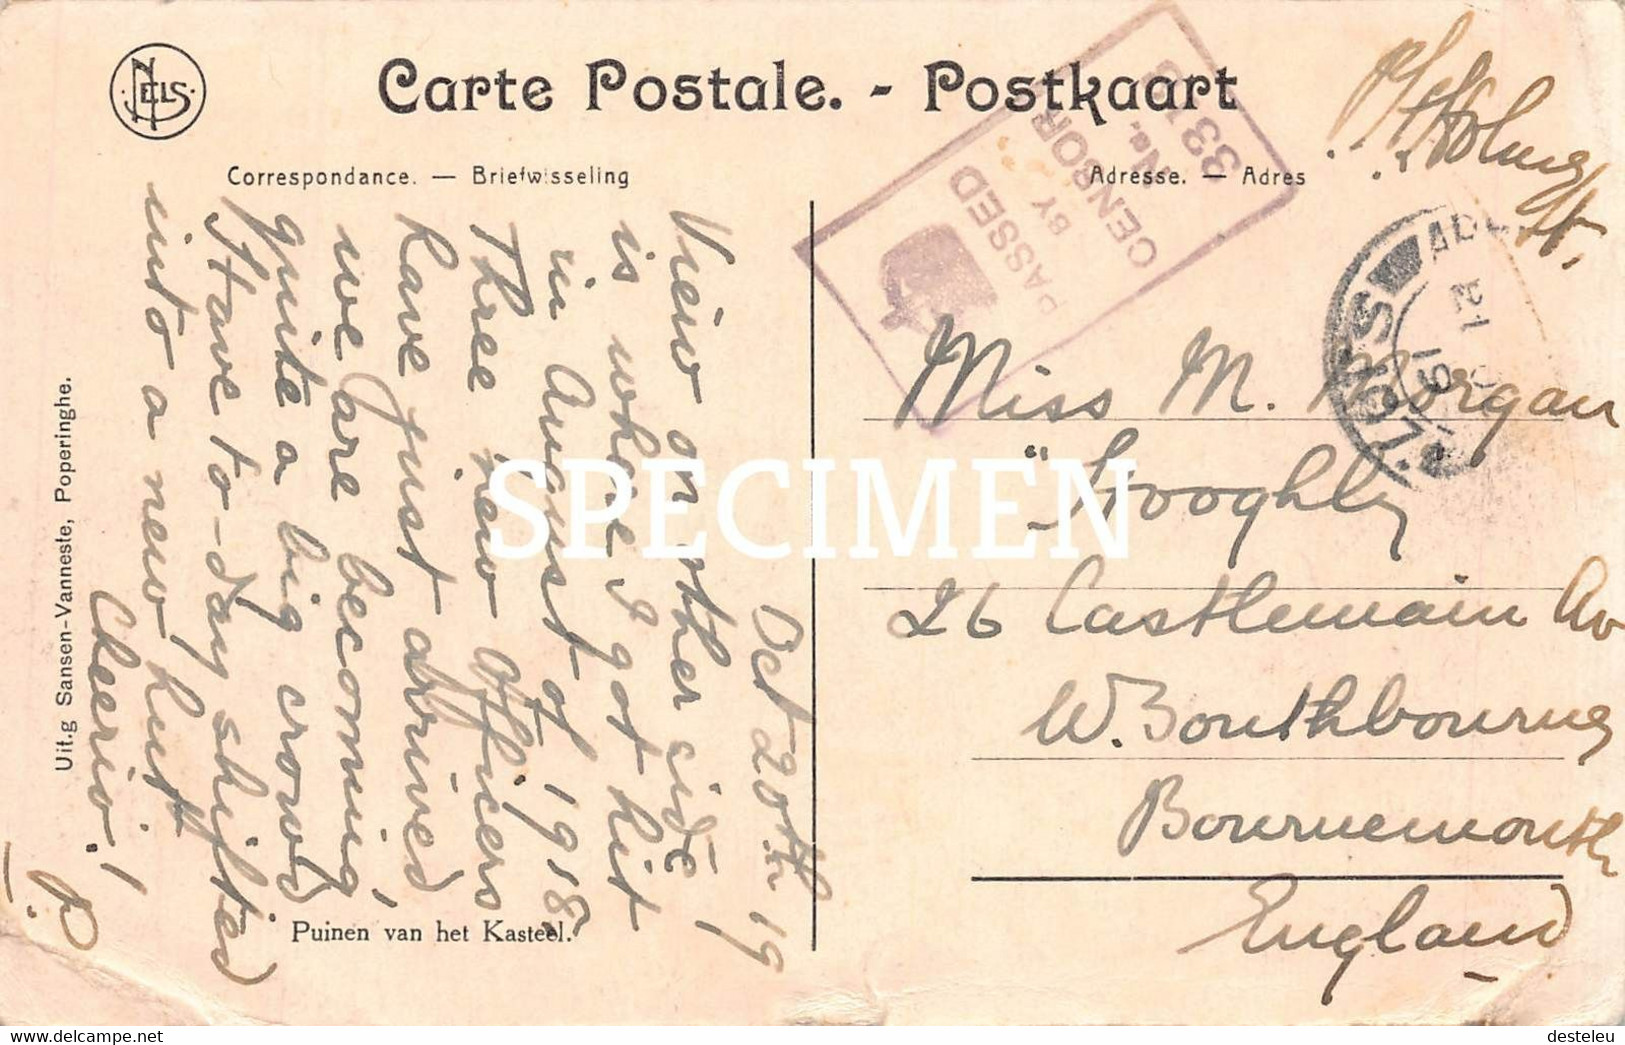 Carte Postale. - Postkaart
NELS
Correspondance. — Briefwisseling
Adresse. — Adres
PASSED
BY
CENSOR
No.
Oct 20th 19
View on other side
is where I got hit
in August of 1918.
Three new officers
have just arrived,
we are becoming
quite a big crowd
Have to-day shifted
into a new hut
Cheerio!
P.
Miss M. Morgan
"Hooghly
26 Castlemain Av
W. Southbourne
Bournemouth
England
Puinen van het Kasteel.
Uit.g Sansen-Vanneste, Poperinghe.
SPECIMEN
delcampe.net
desteleu